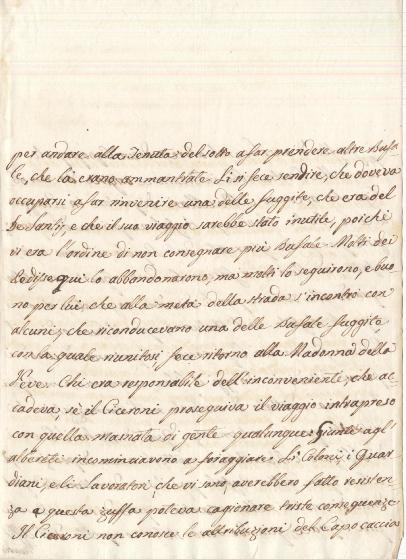 per andare alla Tenuta del sotto a far prendere altre Bufa=
le, che là erano ammantrate Li si fece sentire, che doveva
occuparsi a far rinvenire una delle fuggite, che era del
De Santis, e che il suo viaggio sarebbe stato inutile, poichè
vi era l'ordine di non consegnare più Bufale Molti dei
lo abbandonarono, ma molti lo seguirono, e buo=
no per lui, che alla metà della strada s'incontrò con
alcuni, che riconducevano una delle Bufale fuggite
con la quale riunitosi fece ritorno alla Madonna della
Neve. Chi era responsabile dell'inconveniente, che ac=
cadeva, se il Ciceroni proseguiva il viaggio intrapreso
con quella masnata di gente qualunque. Giunti agl'
albereti incominciavono a foraggiare. Li Coloni, i Guar=
diani, e li Lavoratori che vi sono, averebbero fatto resisten=
za e questa zuffa poteva cagionare triste conseguenze
Il Ciceroni non conosce le attribuzioni del Capo caccia